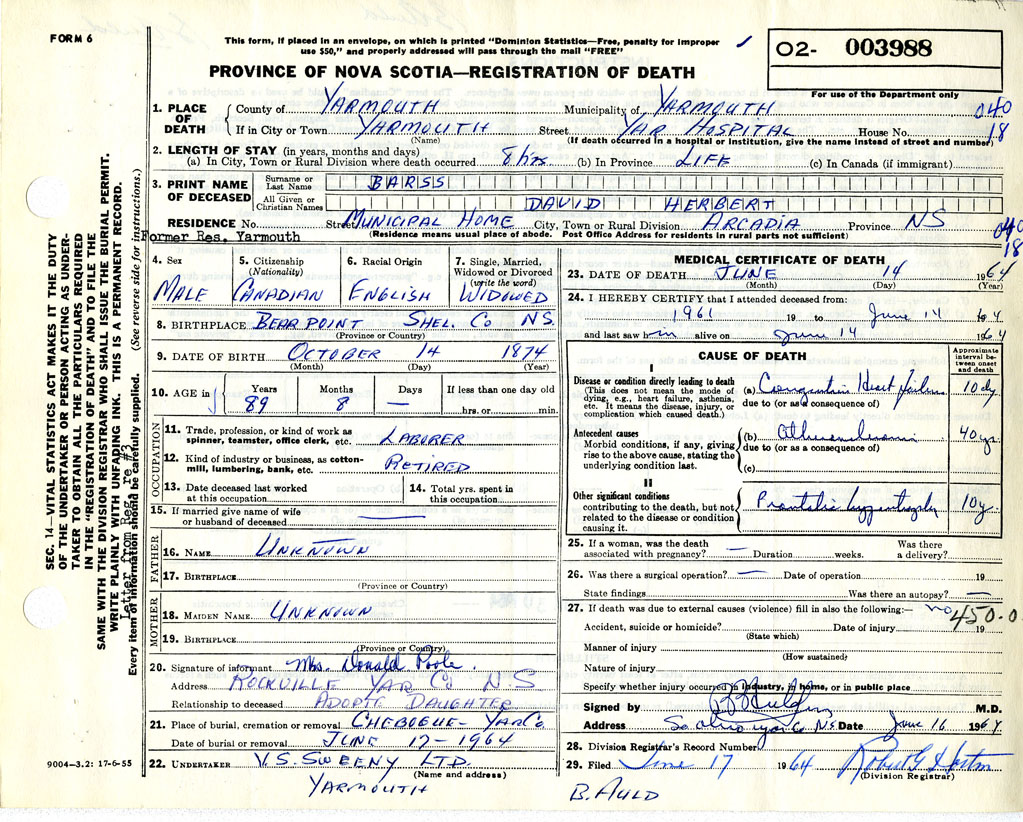 FORM 6
This form, if placed in an envelope, on which is printed "Dominion Statistics—Free, penalty for improper
use $50," and properly addressed will pass through the mail "FREE"
O2- 003988
For use of the Department only
PROVINCE OF NOVA SCOTIA—REGISTRATION OF DEATH
1. PLACE OF DEATH County of YARMOUTH Municipality of YARMOUTH 040
If in City or Town YARMOUTH Street YAR HOSPITAL House No. 18
(Name) (If death occurred in a hospital or institution, give the name instead of street and number)
2. LENGTH OF STAY (in years, months and days)
(a) In City, Town or Rural Division where death occurred 8 hrs (b) In Province LIFE (c) In Canada (if immigrant)
3. PRINT NAME OF DECEASED
Surname or Last Name BARSS
All Given or Christian Names DAVID HERBERT
RESIDENCE No. Street MUNICIPAL HOME City, Town or Rural Division ARCADIA Province NS 040
18
Former Res. Yarmouth (Residence means usual place of abode. Post Office Address for residents in rural parts not sufficient)
4. Sex MALE
5. Citizenship (Nationality) CANADIAN
6. Racial Origin ENGLISH
7. Single, Married, Widowed or Divorced (write the word) WIDOWED
8. BIRTHPLACE BEAR POINT SHEL. CO NS.
(Province or Country)
9. DATE OF BIRTH OCTOBER 14 1874
(Month) (Day) (Year)
10. AGE in Years 89 Months 8 Days — If less than one day old hrs. or min.
OCCUPATION
11. Trade, profession, or kind of work as spinner, teamster, office clerk, etc. LABORER
12. Kind of industry or business, as cotton-mill, lumbering, bank, etc. RETIRED
13. Date deceased last worked at this occupation
14. Total yrs. spent in this occupation
15. If married give name of wife or husband of deceased —
FATHER
16. NAME UNKNOWN
17. BIRTHPLACE
(Province or Country)
MOTHER
18. MAIDEN NAME UNKNOWN
19. BIRTHPLACE
(Province or Country)
20. Signature of informant Mrs. Donald Poole.
Address ROCKVILLE YAR CO NS
Relationship to deceased ADOPTE DAUGHTER
21. Place of burial, cremation or removal CHEBOGUE - YAR CO.
Date of burial or removal JUNE 17-1964
22. UNDERTAKER V.S. SWEENY LTD.
(Name and address)
YARMOUTH
9004—3.2: 17-6-55
MEDICAL CERTIFICATE OF DEATH
23. DATE OF DEATH JUNE 14 1964
(Month) (Day) (Year)
24. I HEREBY CERTIFY that I attended deceased from:
1961 19 to June 14 1964
and last saw h im alive on June 14 1964
CAUSE OF DEATH
Approximate interval between onset and death
I
Disease or condition directly leading to death
(This does not mean the mode of dying, e.g., heart failure, asthenia, etc. It means the disease, injury, or complication which caused death.)
(a) Congestive Heart failure 10 dy
due to (or as a consequence of)
Antecedent causes
Morbid conditions, if any, giving rise to the above cause, stating the underlying condition last.
(b) 40 yr
due to (or as a consequence of)
(c)
II
Other significant conditions
contributing to the death, but not related to the disease or condition causing it.
Prostatic hypertrophy 10 y.
25. If a woman, was the death associated with pregnancy? — Duration weeks. Was there a delivery?
26. Was there a surgical operation? — Date of operation 19
State findings Was there an autopsy? —
27. If death was due to external causes (violence) fill in also the following:— no 450.0
Accident, suicide or homicide? Date of injury 19
(State which)
Manner of injury
(How sustained)
Nature of injury
Specify whether injury occurred in industry, in home, or in public place
Signed by M.D.
Address NS Date June 16 1964
28. Division Registrar's Record Number
29. Filed June 17 1964 Robert G
(Division Registrar)
B. AULD
SEC. 14—VITAL STATISTICS ACT MAKES IT THE DUTY
OF THE UNDERTAKER OR PERSON ACTING AS UNDER-
TAKER TO OBTAIN ALL THE PARTICULARS REQUIRED
IN THE "REGISTRATION OF DEATH" AND TO FILE THE
SAME WITH THE DIVISION REGISTRAR WHO SHALL ISSUE THE BURIAL PERMIT.
WRITE PLAINLY WITH UNFADING INK. THIS IS A PERMANENT RECORD.
Letter from Reg. re #3
Every item of information should be carefully supplied. (See reverse side for instructions.)